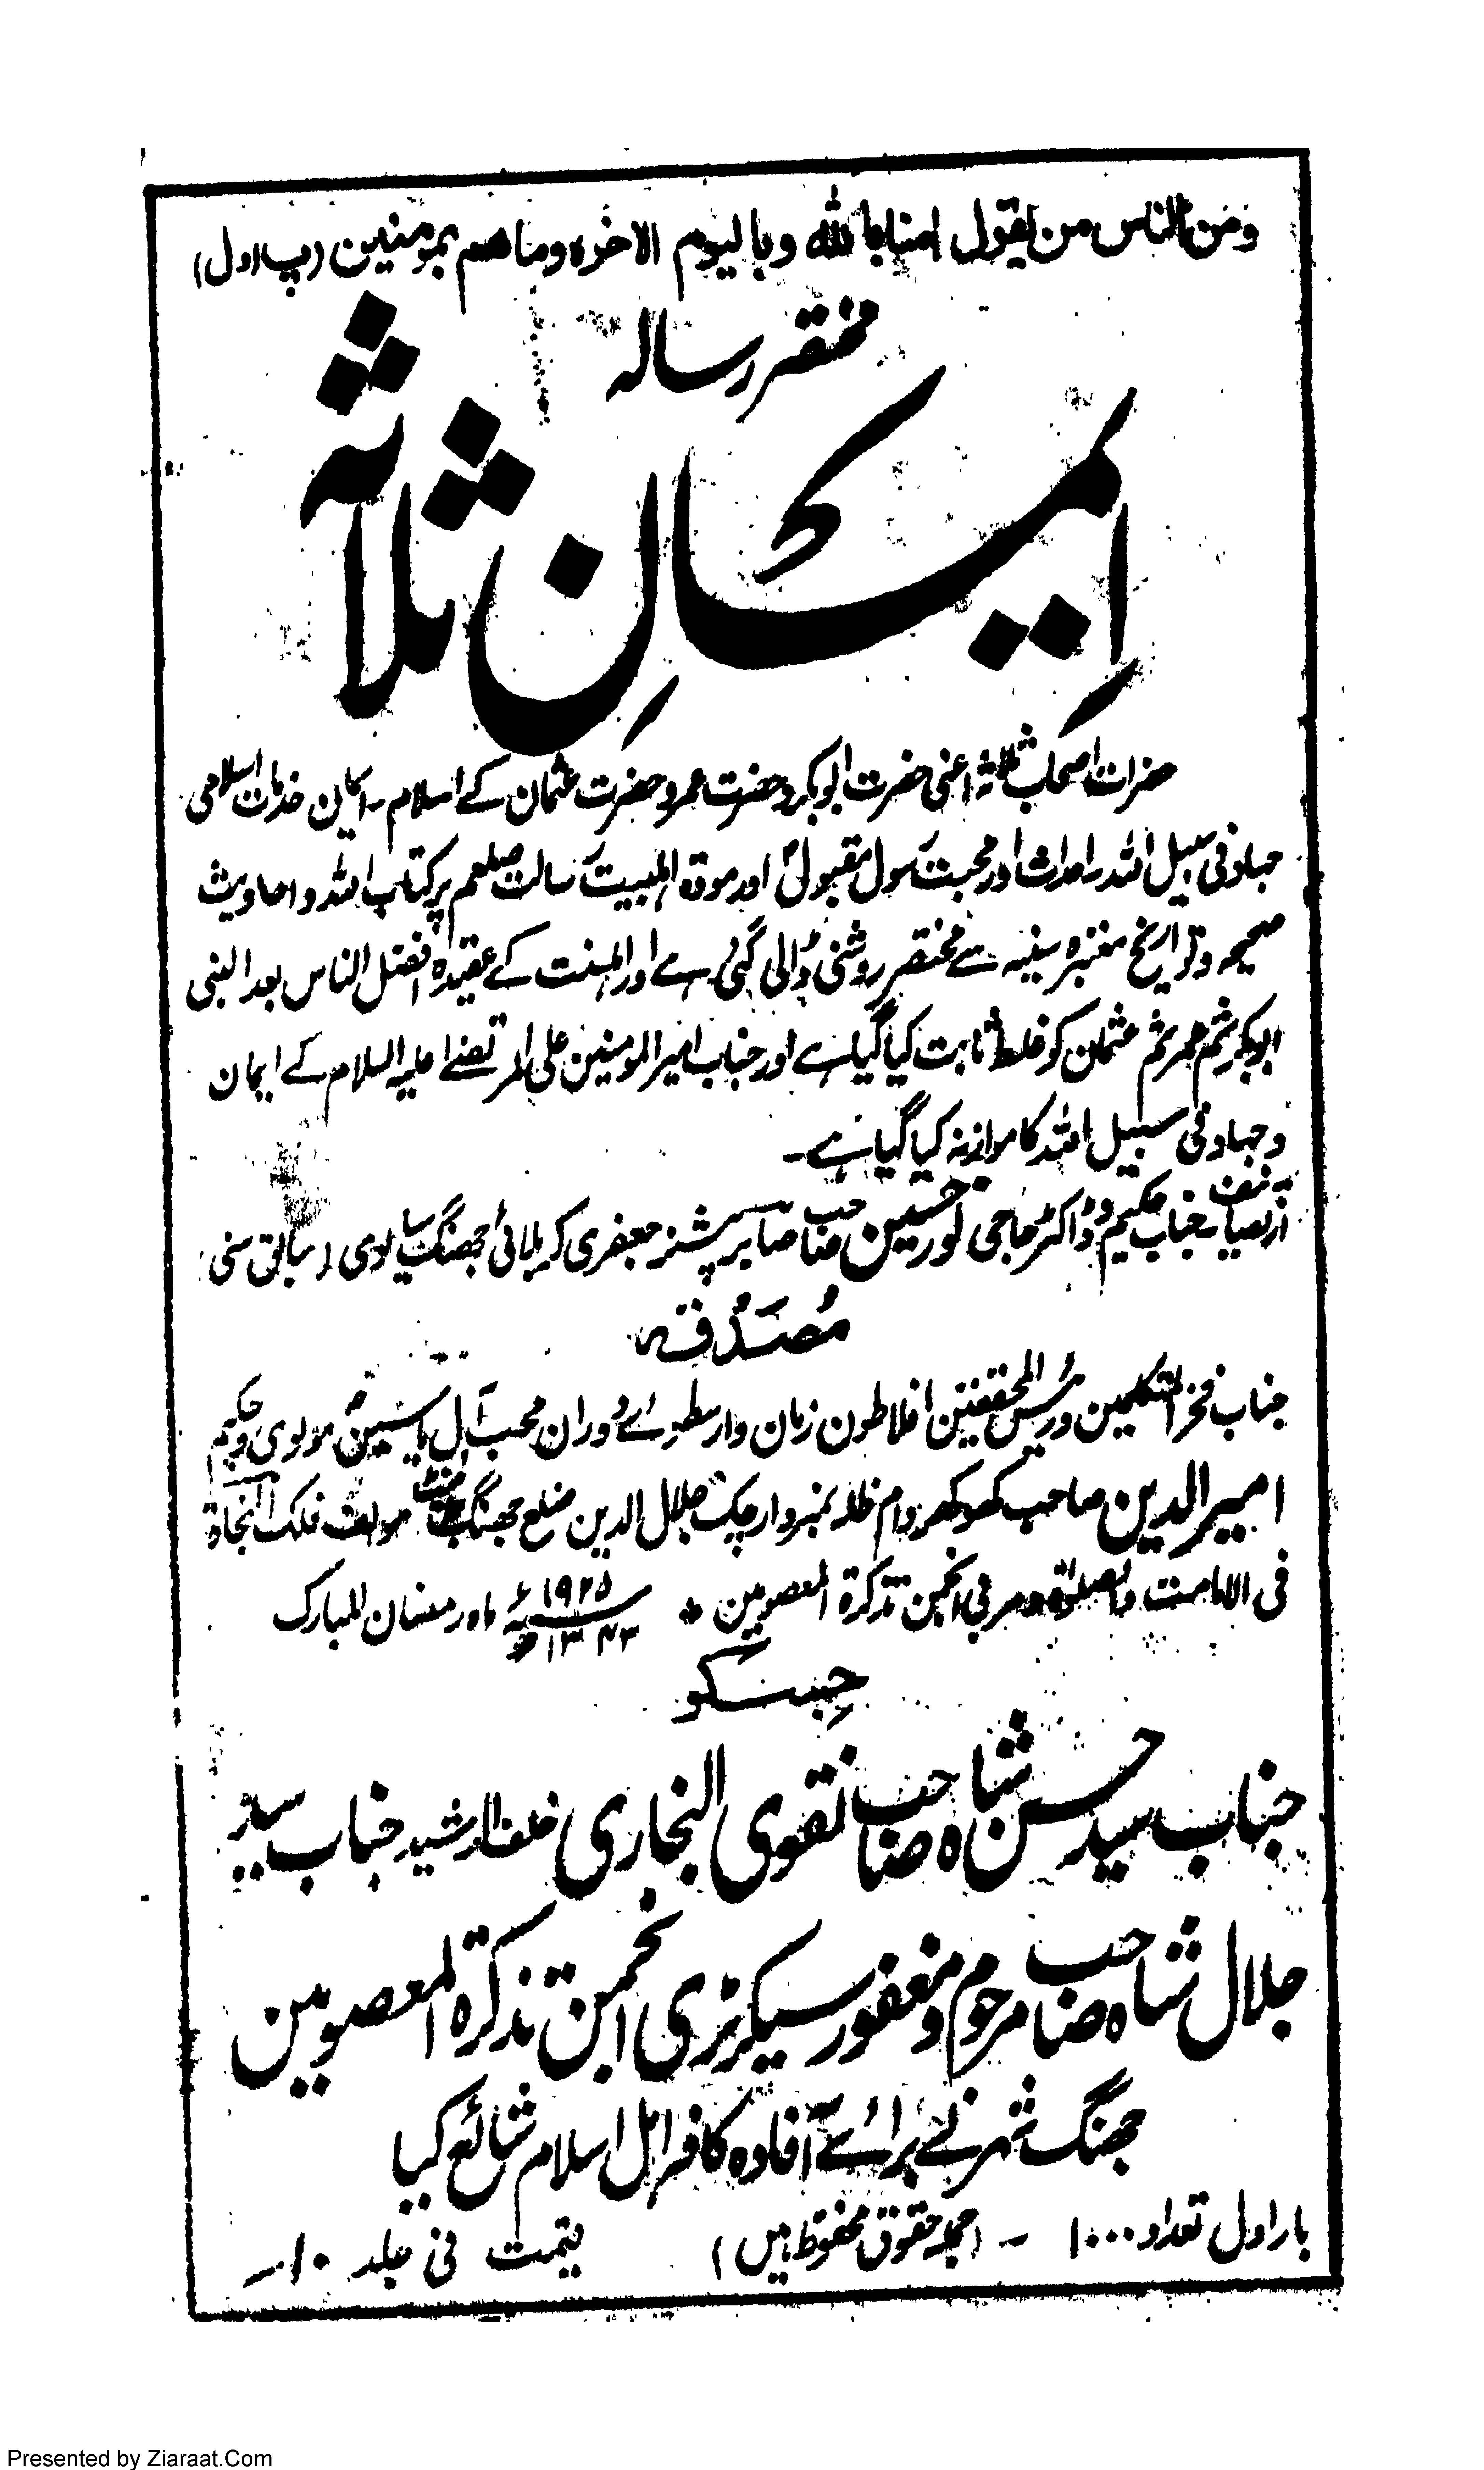 ومن الناس من یقول امنا باللہ وبالیوم الاخرہ وما ھم بمومنین (پ اول)
مختصر رسالہ
اِیمانِ ثلاثہ
حضرات اصحاب ثلاثہ اعنی حضرت ابوبکر و حضرت عمر و حضرت عثمان کے اسلام۔ ایمان خدمات اسلامی
جہاد فی سبیل اللہ احداث اور محبت رسول مقبولؐ اور مودۃ اہلبیت رسالت صلعم پر کتاب اللہ و احادیث
صحیحہ و تواریخ معتبرہ سنیہ سے مختصر روشنی ڈالی گئی ہے اور اہلسنت کے عقیدہ افضل الناس بعد النبی
ابوبکر ثم عمر ثم عثمان کو غلط ثابت کیا گیا ہے اور جناب امیر المومنین علی المرتضےٰ علیہ السلام کے ایمان
و جہاد فی سبیل اللہ کا موازنہ کیا گیا ہے۔
از تصانیف جناب حکیم و ڈاکٹر حاجی نور حسین صاحب صابر پنشنر جعفری کربلائی جھنگ سیالوی (سابق سنی)
مُصَدَّقہ
جناب فخر المتکلمین و رئیس المحققین افلاطون زمان و ارسطوئے دوران محب آل یاسین مولوی حکیم
امیر الدین صاحب کھوکھر دام ظلہ نمبردار چک جلال الدین ضلع جھنگ مولف فلک النجاۃ
فی الامامت والصلوٰۃ و مربی انجمن تذکرۃ المعصومین ۱۹۲۵ء ۱۳۴۳ھ ماہ رمضان المبارک
جسکو
جناب سید حسن شاہ صاحب نقوی البخاری خلف الرشید جناب سید
جلال شاہ صاحب مرحوم و مغفور سیکرٹری انجمن تذکرۃ المعصومین
جھنگ شہر نے برائے آفادہ کافہ اہل اسلام شائع کیا
بار اول تعداد ۱۰۰۰ ۔ (جملہ حقوق محفوظ ہیں) قیمت فی جلد ۱۰۔
Presented by Ziaraat.Com